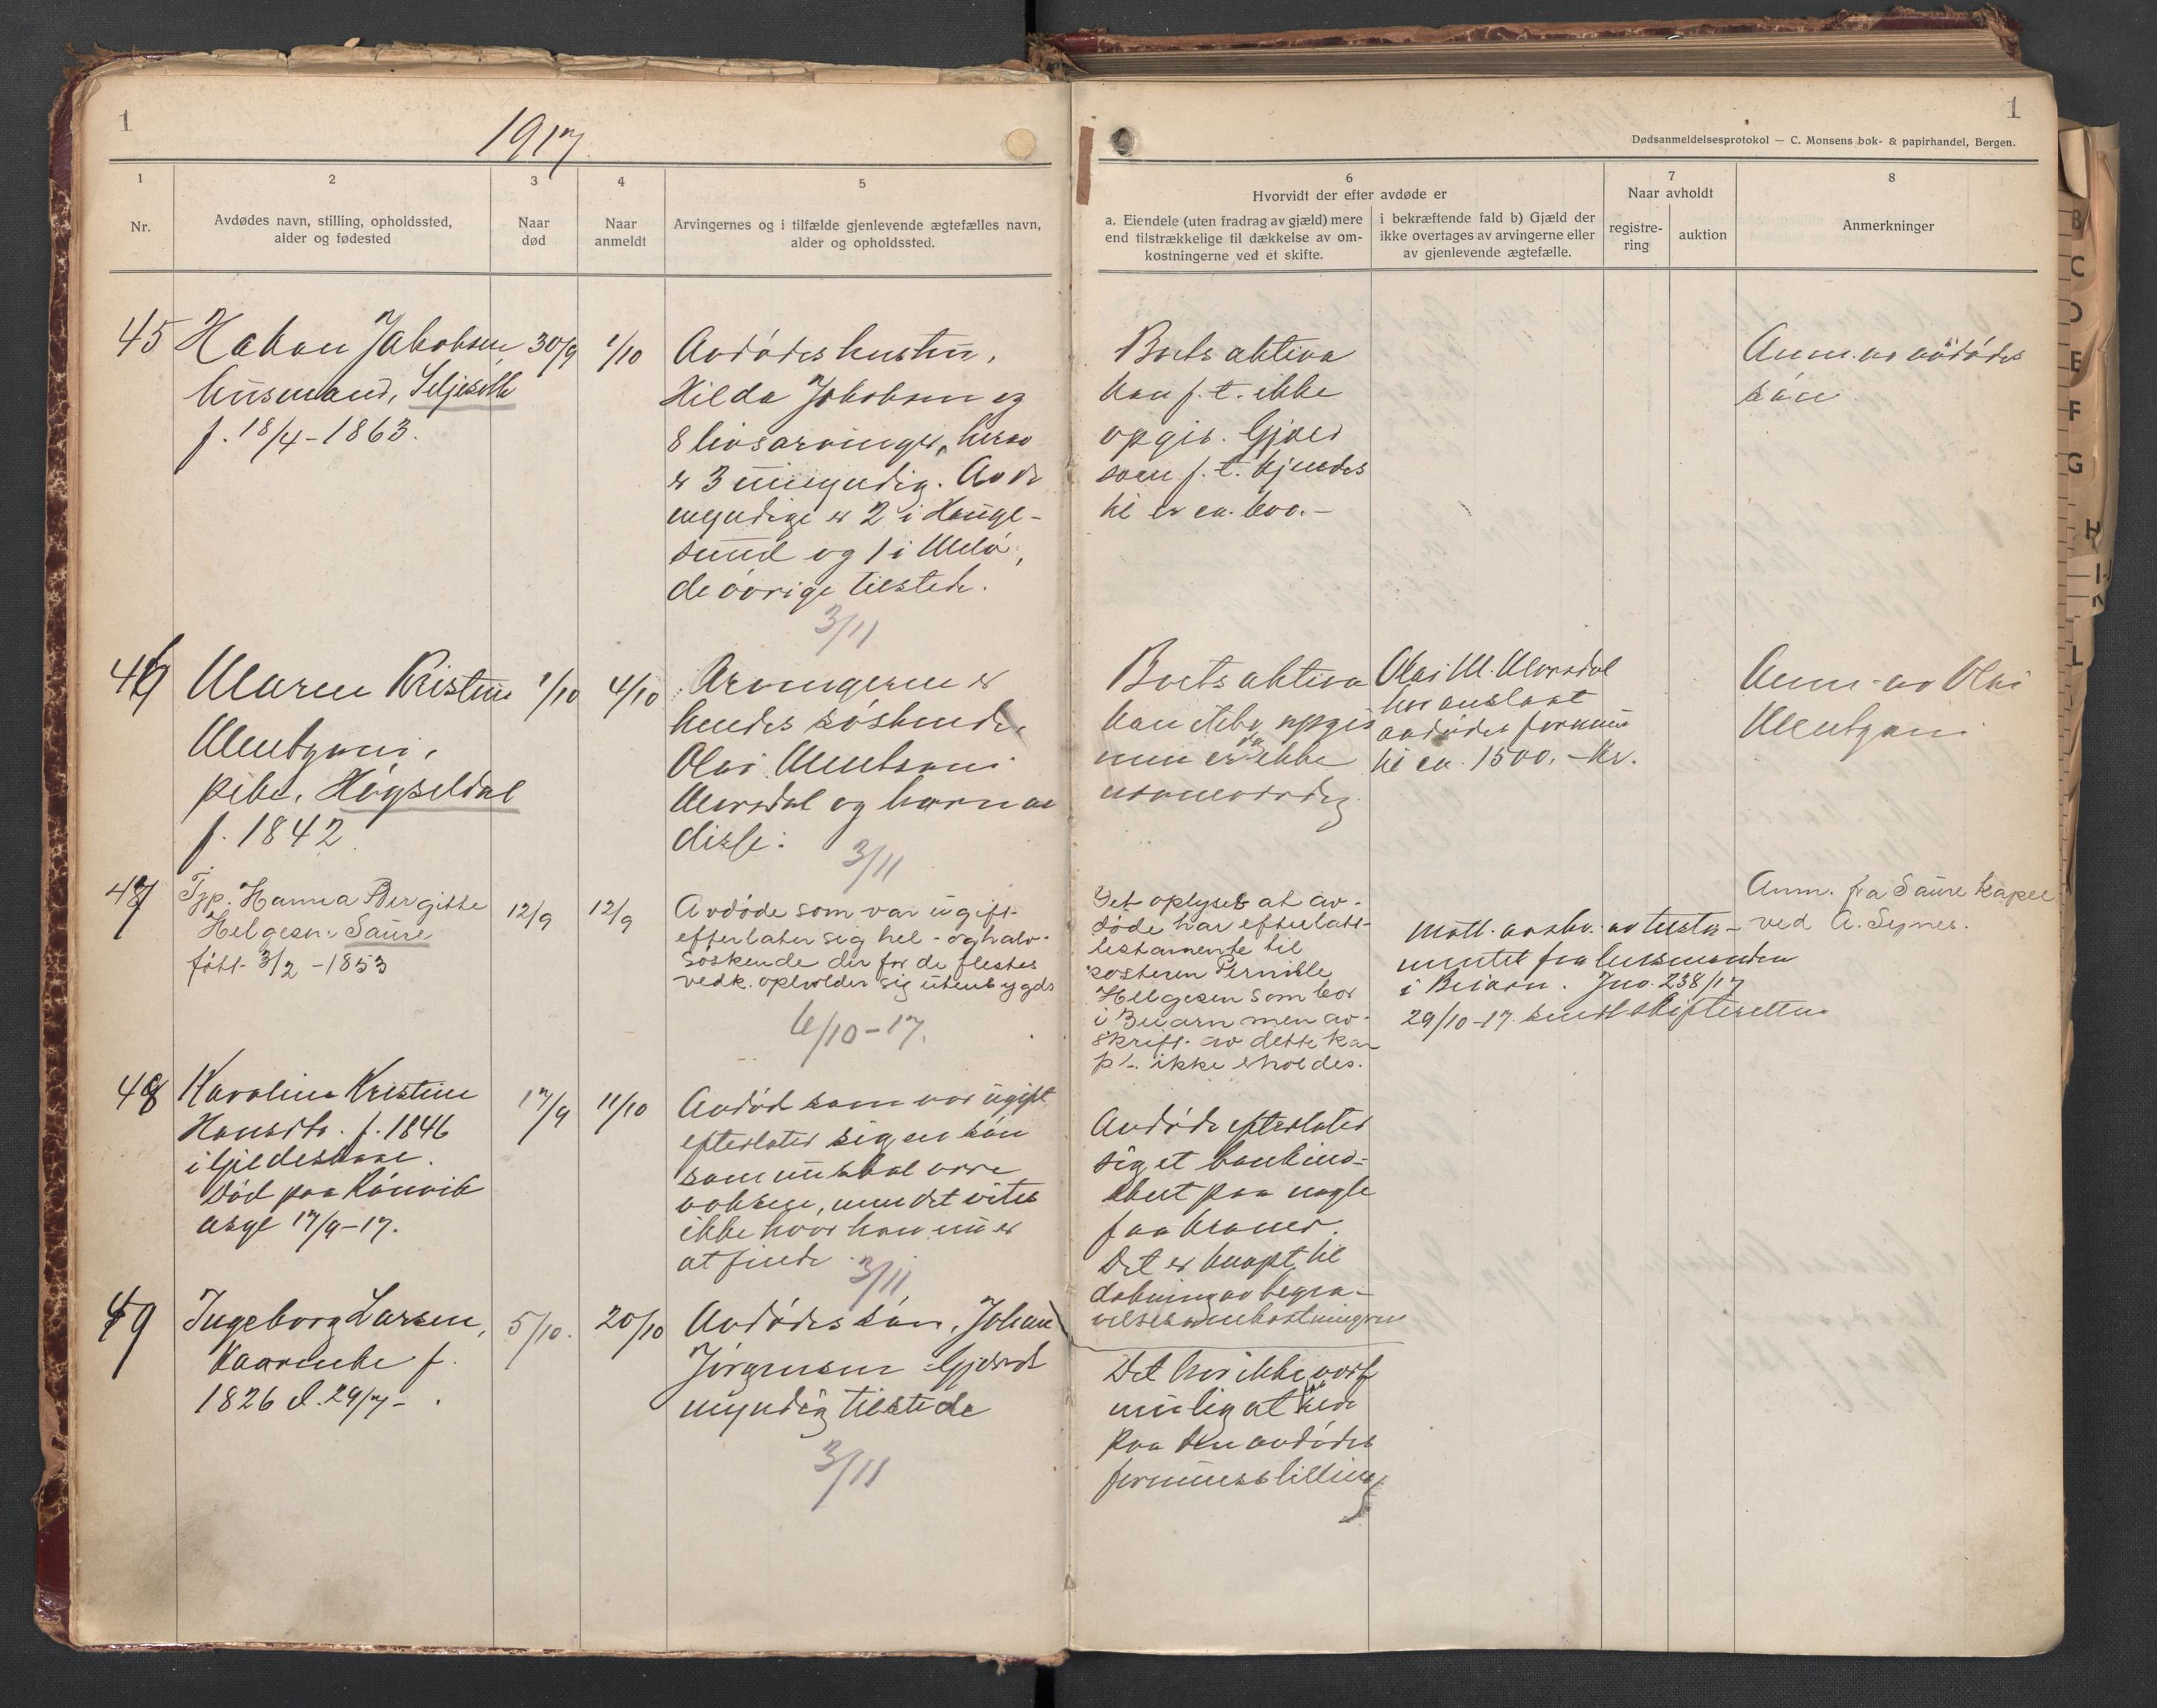 1
1917.
1
Dødsanmeldelsesprotokol — C. Monsens bok- & papirhandel, Bergen.
1
Nr.
2
Avdødes navn, stilling, opholdssted,
alder og fødested
3
Naar
død
4
Naar
anmeldt
5
Arvingernes og i tilfælde gjenlevende ægtefælles navn,
alder og opholdssted.
6
Hvorvidt der efter avdøde er
a. Eiendele (uten fradrag av gjæld) mere
end tilstrækkelige til dækkelse av om-
kostningerne ved et skifte.
i bekræftende fald b) Gjæld der
ikke overtages av arvingerne eller
av gjenlevende ægtefælle.
7
Naar avholdt
registre-
ring
auktion
8
Anmerkninger
45
Hakon Jakobsen
husmand,
f. 18/4-1863.
30/9
1/10
Avdødes hustru,
Hilda Jakobsen og
8 livsarvinger, herav
er 3 umyndig. Av de
myndige er 2 i Hauge-
sund og 1 i Melø,
de øvrige tilstede.
3/11
Boets aktiva
kan f. t. ikke
opgis. Gjæld
som f. t. kjendes
til er ca. 600.-
Anm. av avdødes
søn
46
Maren Kristine
pike, Høgseldal
f. 1842
1/10
4/10
Arvingerne er
hendes søskende,
Olai
og barn av
disse:
3/11
Boets aktiva
kan ikke opgis
men er da ikke
Olai M.
har anslaat
avdødes formue
til ca. 1500.- kr.
Anm. av Olai
47
Tjp. Hanna Bergitte
Helgesen, Saure
født 3/2-1853
12/9
12/9
Avdøde som var ugift
efterlater sig hel- og halv-
søskende der for de flestes
vedk. opholder sig utenbygds
6/10-17.
Det oplyses at av-
døde har efterlatt
testamente til
søsteren Pernille
Helgesen som bor
i Beiarn men av-
skrift av dette kan
p.t. ikke erholdes.
Mott. avskr. av testa-
mentet fra lensmanden
i Beiarn. Jno. 238/17
29/10-17. sendt skifteretten
Anm. fra Saure kapel
ved A. Synes.
48
Karoline Kristine
Hansdtr. f. 1846
i Gildeskaal.
Død paa Rønvik
asyl 17/9-17.
17/9
11/10
Avdød som var ugift
efterlater sig en søn
som nu skal være
voksen, men det vites
ikke hvor han nu er
at finde
3/11
Avdøde efterlater
sig et bankind-
skut paa nogle
faa kroner.
Det er knapt til
dækning av begra-
velsesomkostningerne
49
Ingeborg Larsen,
f.
1826 d. 29/7-.
5/10.
20/10
Avdødes søn, Johan
Jørgensen
myndig tilstede
3/11
Det har ikke vært
mulig at faa rede
paa den avdødes
formuesstilling
B
C
D
E
F
G
H
I
K
L